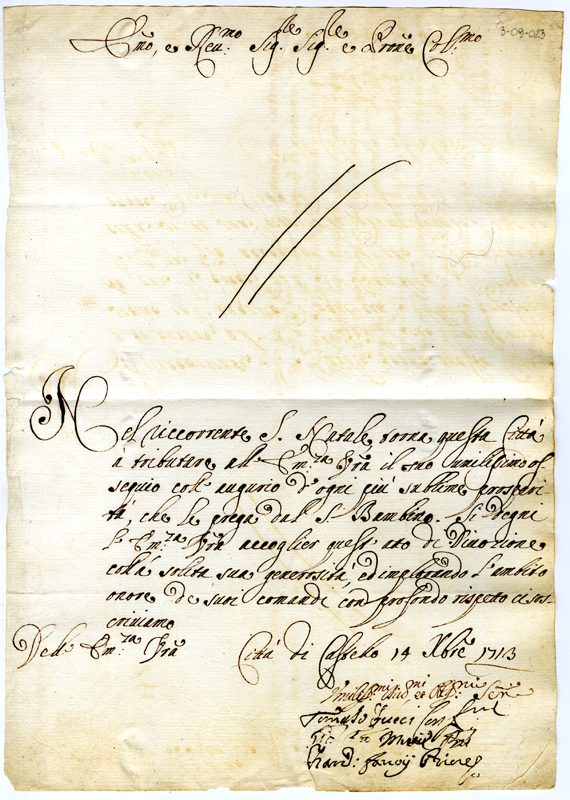 3-09-023
Emo, e Reu:mo Sig:re Sig:re e Prone Col:mo
Nel riccorrente S. Natale torna questa Città
à tributare all' Em:za Vra il suo umilissimo os
sequio coll' augurio d'ogni più sublime prosperi
tà, che le prega dal S. Bambino. Si degni
l' Em:za Vra accoglier quest' atto di Divozione
colla solita sua generosità, ed implorando l'ambito
onore de suoi comandi con profondo rispetto ci sos
criviamo
Dell' Em:za Vra Città di Castello 14 Xbre 1713
Umilis:mi Diu:mi et Obl:mi Seri